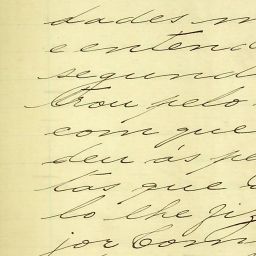 dades m
e entend
segund
trou pelo
com que
deu ás pe
tas, que
lo lhe fiz
jor Com